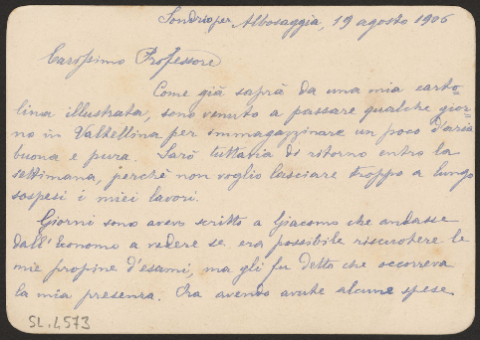 Sondrio per Albosaggia, 19 agosto 1906
Carissimo Professore
Come già saprà da una mia carto=
lina illustrata, sono venuto a passare qualche gior=
no in Valtellina per immagazzinare un poco d'aria
buona e pura. Sarò tuttavia di ritorno entro la
settimana, perché non voglio lasciare troppo a lungo
sospesi i miei lavori.
Giorni sono avevo scritto a Giacomo che andasse
dall'Economo a vedere se era possibile riscuotere le
mie propine d'esami, ma gli fu detto che occorreva
la mia presenza. Ora avendo avute alcune spese
SL.L573